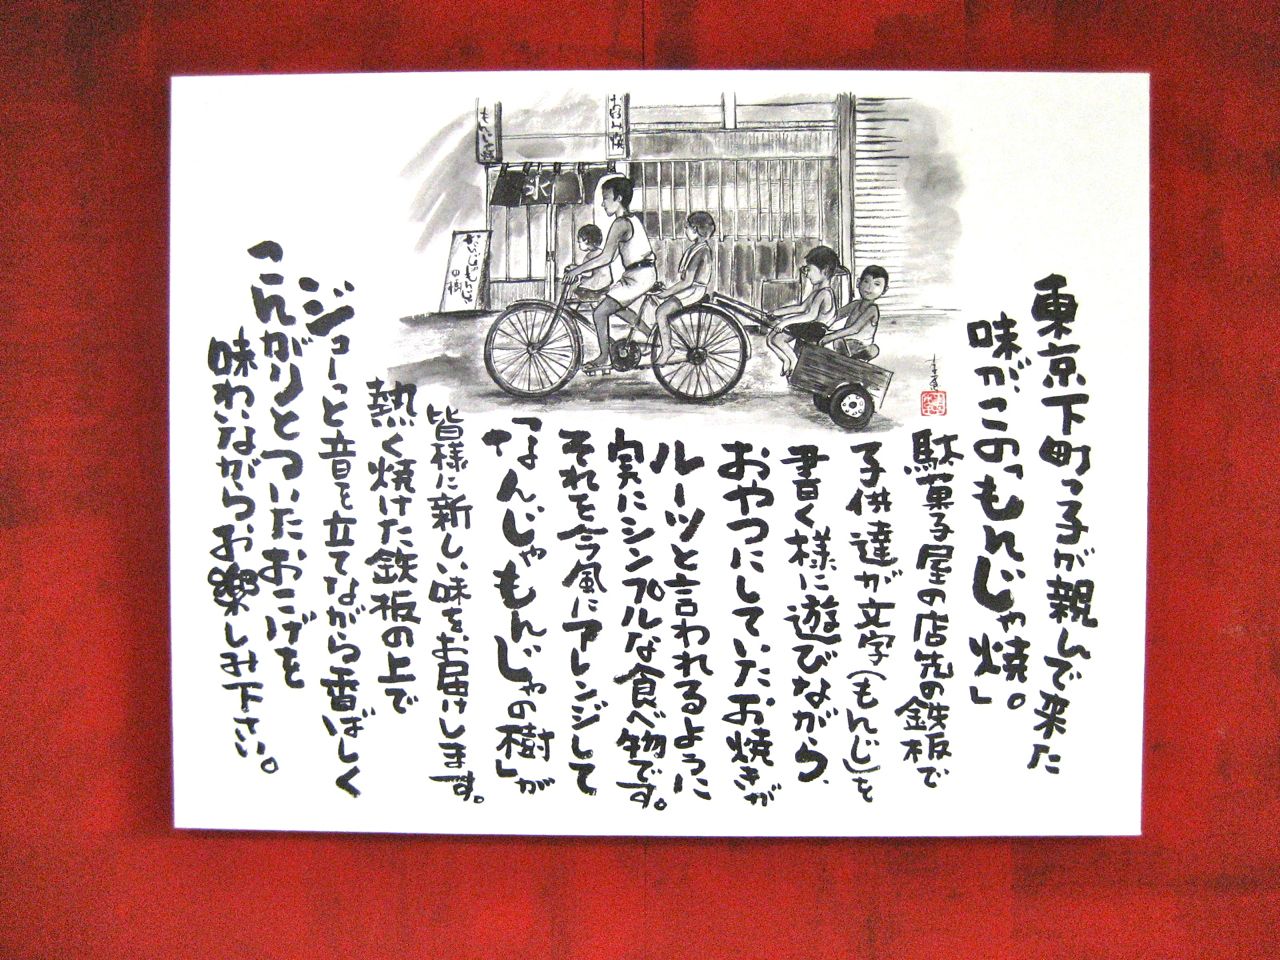 東京下町っ子が親しんで来た
味が、この「もんじゃ焼」。
駄菓子屋の店先の鉄板で
子供達が文字(もんじ)を
書く様に遊びながら、
おやつにしていたお焼きが
ルーツと言われるように
実にシンプルな食べ物です。
それを今風にアレンジして
「なんじゃもんじゃの樹」が
皆様に新しい味をお届けします。
熱く焼けた鉄板の上で
ジューっと音を立てながら香ばしく
こんがりとついたおこげを
味わいながらお楽しみ下さい。
氷
なんじゃもんじゃ
の樹